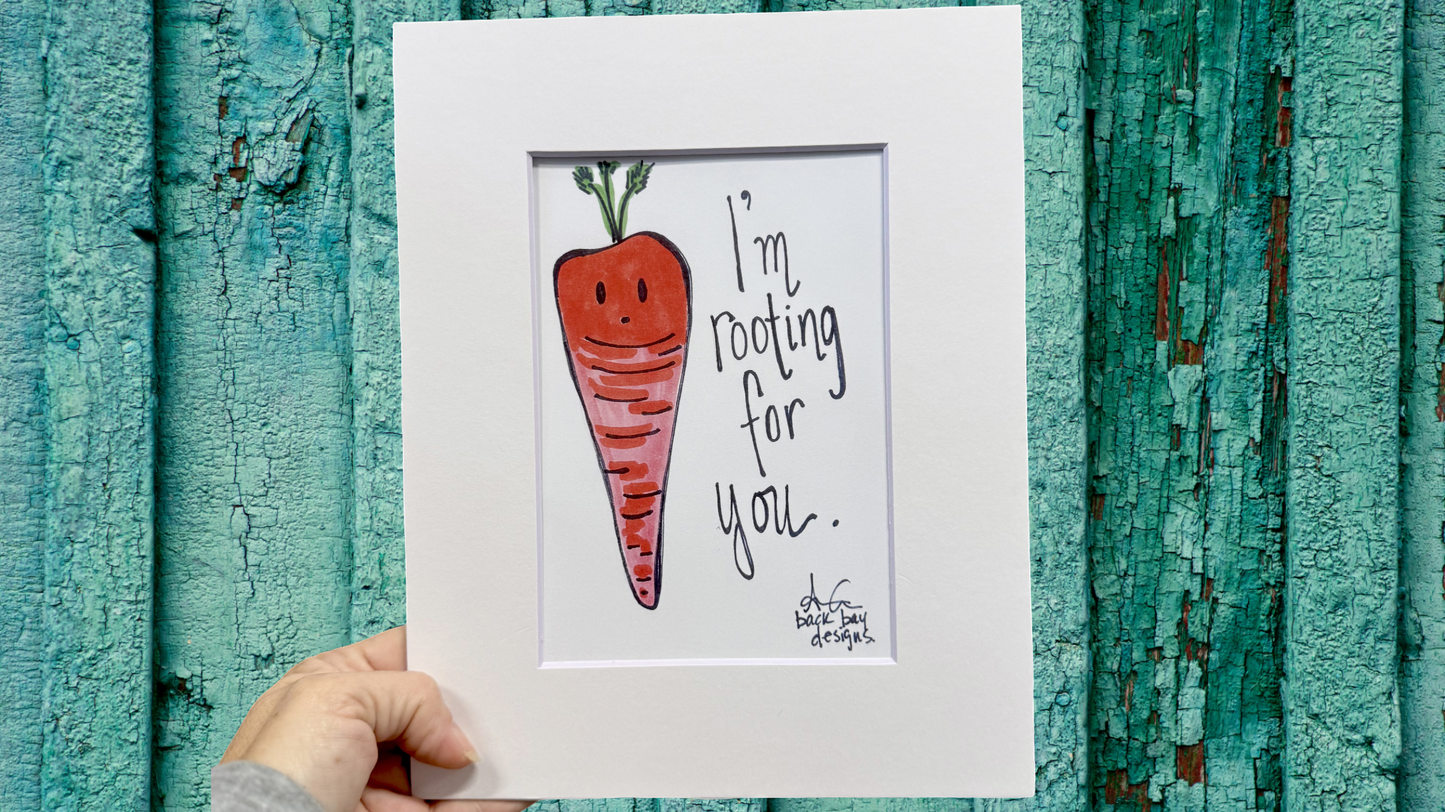 I'm
rooting
for
you.
AG
back bay
designs.